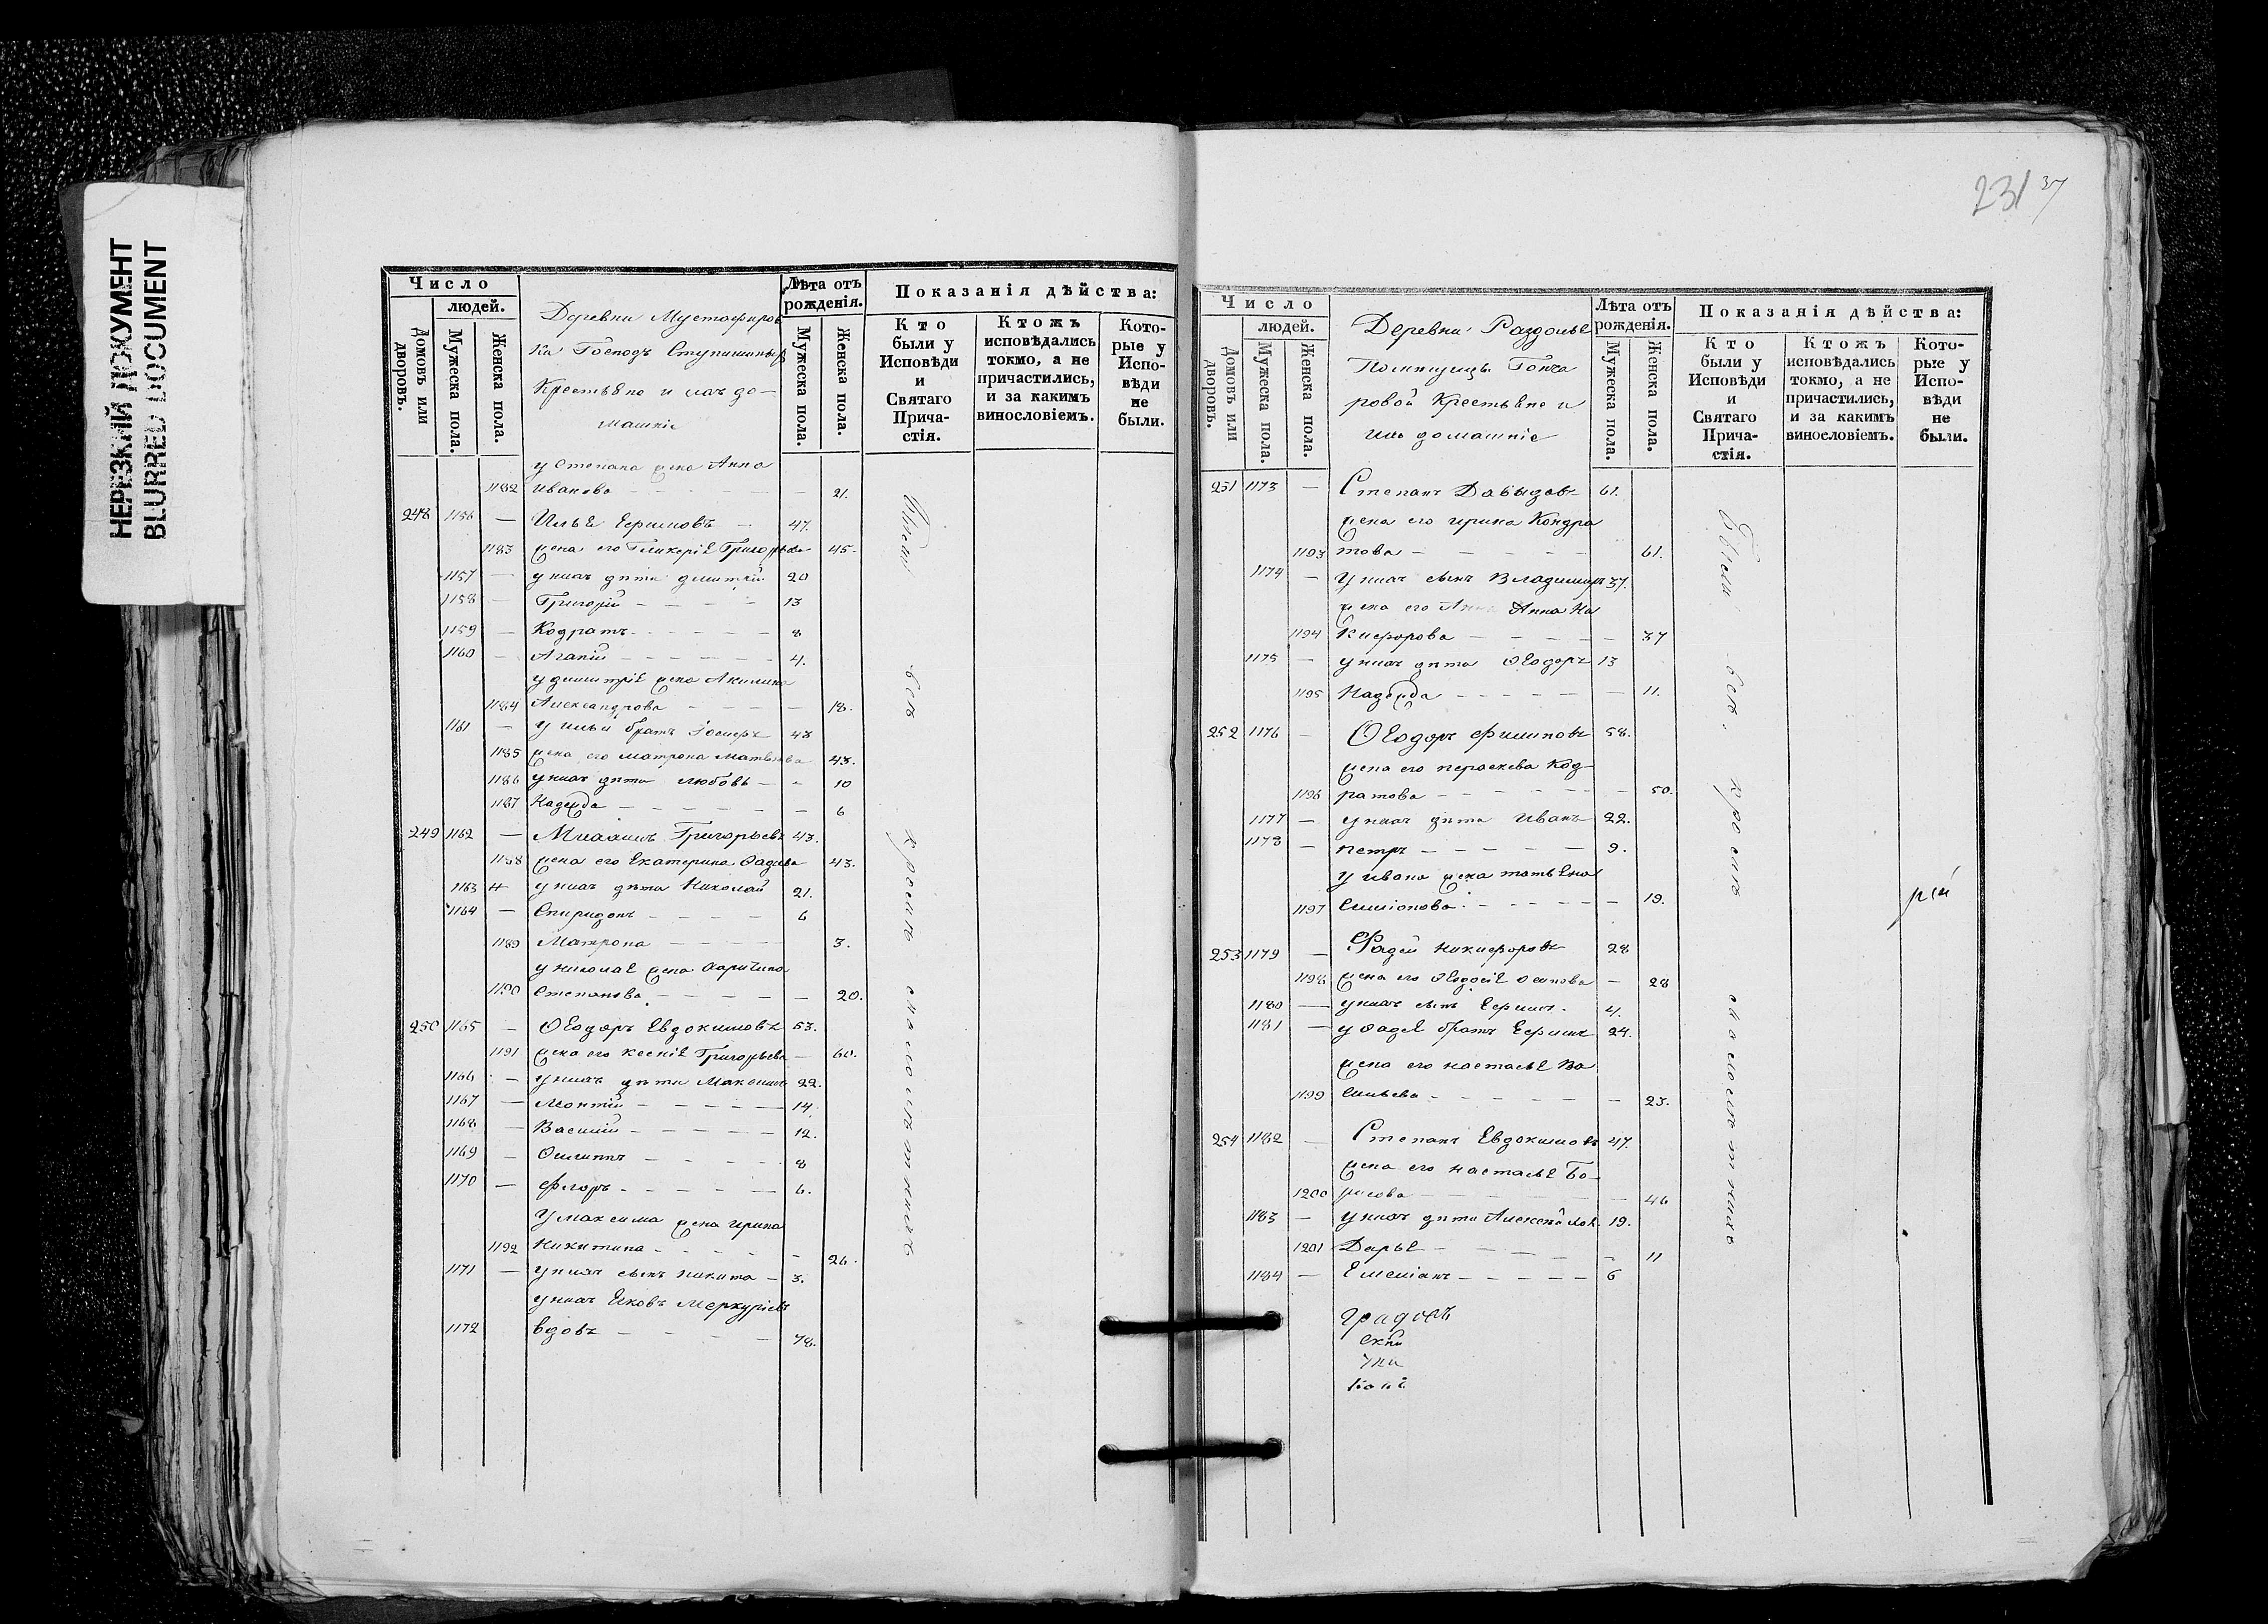 НЕРЕЗКИЙ ДОКУМЕНТ
BLURRED DOCUMENT
Число
людей.
Домовъ или дворовъ.
Мужеска пола.
Женска пола.
Деревни Мустафиров
ки Господъ Ступишиныхъ
Крестьяне и ихъ до-
машніе
Лѣта отъ рожденія.
Мужеска пола.
Женска пола.
Показанія дѣйства:
Кто были у Исповѣди и Святаго Причастія.
Ктожъ исповѣдались токмо, а не причастились, и за какимъ винословіемъ.
Которые у Исповѣди не были.
у Степана жена Анна
1182 Иванова - 21.
248 1156 — Илья Ефимовъ - 47.
1183 жена его Гликерія Григорьева 45.
1157 — у нихъ дѣти Дмитрій 20
1158 — Григорій - 13
1159 — Кодратъ - 8
1160 — Агапій - 4.
у Димитрія жена Акилина
1184 Александрова - 18.
1161 — у Ильи братъ Іосифъ 43
1185 жена его Матрона Матвѣева 43.
1186 у нихъ дѣти Любовь - 10
1187 Надежда - 6
249 1162 — Михаилъ Григорьевъ 43.
1188 жена его Екатерина Фадѣева 43.
1163 у нихъ дѣти Николай 21.
1164 — Спиридонъ - 6
1189 Матрона - 3.
у Николая жена
1190 Степанова - 20.
250 1165 — Ѳеодоръ Евдокимовъ 53.
1191 жена его Ксенія Григорьева - 60.
1166 — у нихъ дѣти Максимъ 22.
1167 — Леонтій - 14.
1168 — Василій - 12.
1169 — Филиппъ - 8
1170 — Флоръ - 6.
У Максима жена Ирина
1192 Никитина - 26.
1171 — у нихъ сынъ Никита - 3.
у нихъ Яковъ Меркуріевъ
1172 вдовъ - 78.
Были всѣ кромѣ малолѣтнихъ
231 37
Число
людей.
Домовъ или дворовъ.
Мужеска пола.
Женска пола.
Деревни Раздолье
Помѣщицы Гонча
ровой Крестьяне и
ихъ домашніе
Лѣта отъ рожденія.
Мужеска пола.
Женска пола.
Показанія дѣйства:
Кто были у Исповѣди и Святаго Причастія.
Ктожъ исповѣдались токмо, а не причастились, и за какимъ винословіемъ.
Которые у Исповѣди не были.
251 1173 — Степанъ Давыдовъ 61.
жена его Ирина Кондра
1193 това - 61.
1174 — У нихъ сынъ Владимиръ 37.
жена его Анна Ни
1194 кифорова - 37
1175 — у нихъ дѣти Ѳеодоръ 13
1195 Надежда - 11.
252 1176 — Ѳеодоръ Филиповъ 58.
жена его Параскева Код-
1196 ратова - 50.
1177 — у нихъ дѣти Иванъ 22.
1178 — Петръ - 9.
у Ивана жена Татьяна
1197 Симіонова - 19.
253 1179 — Фадей Никифоровъ 28
1198 жена его Ѳеодосія Осипова - 28
1180 — у нихъ сынъ Ефимъ 4.
1181 — у Фадея братъ Ефимъ 24.
жена его Настасья Ва
1199 сильева - 23.
254 1182 — Степанъ Евдокимовъ 47.
жена его Настасья Бо-
1200 рисова - 46
1183 — у нихъ дѣти 19.
1201 Дарья - 11
1184 — Емеліанъ - 6
Были всѣ кромѣ малолѣтнихъ
рѣй